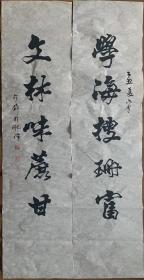 學海搜珊富
文林味蔗甘